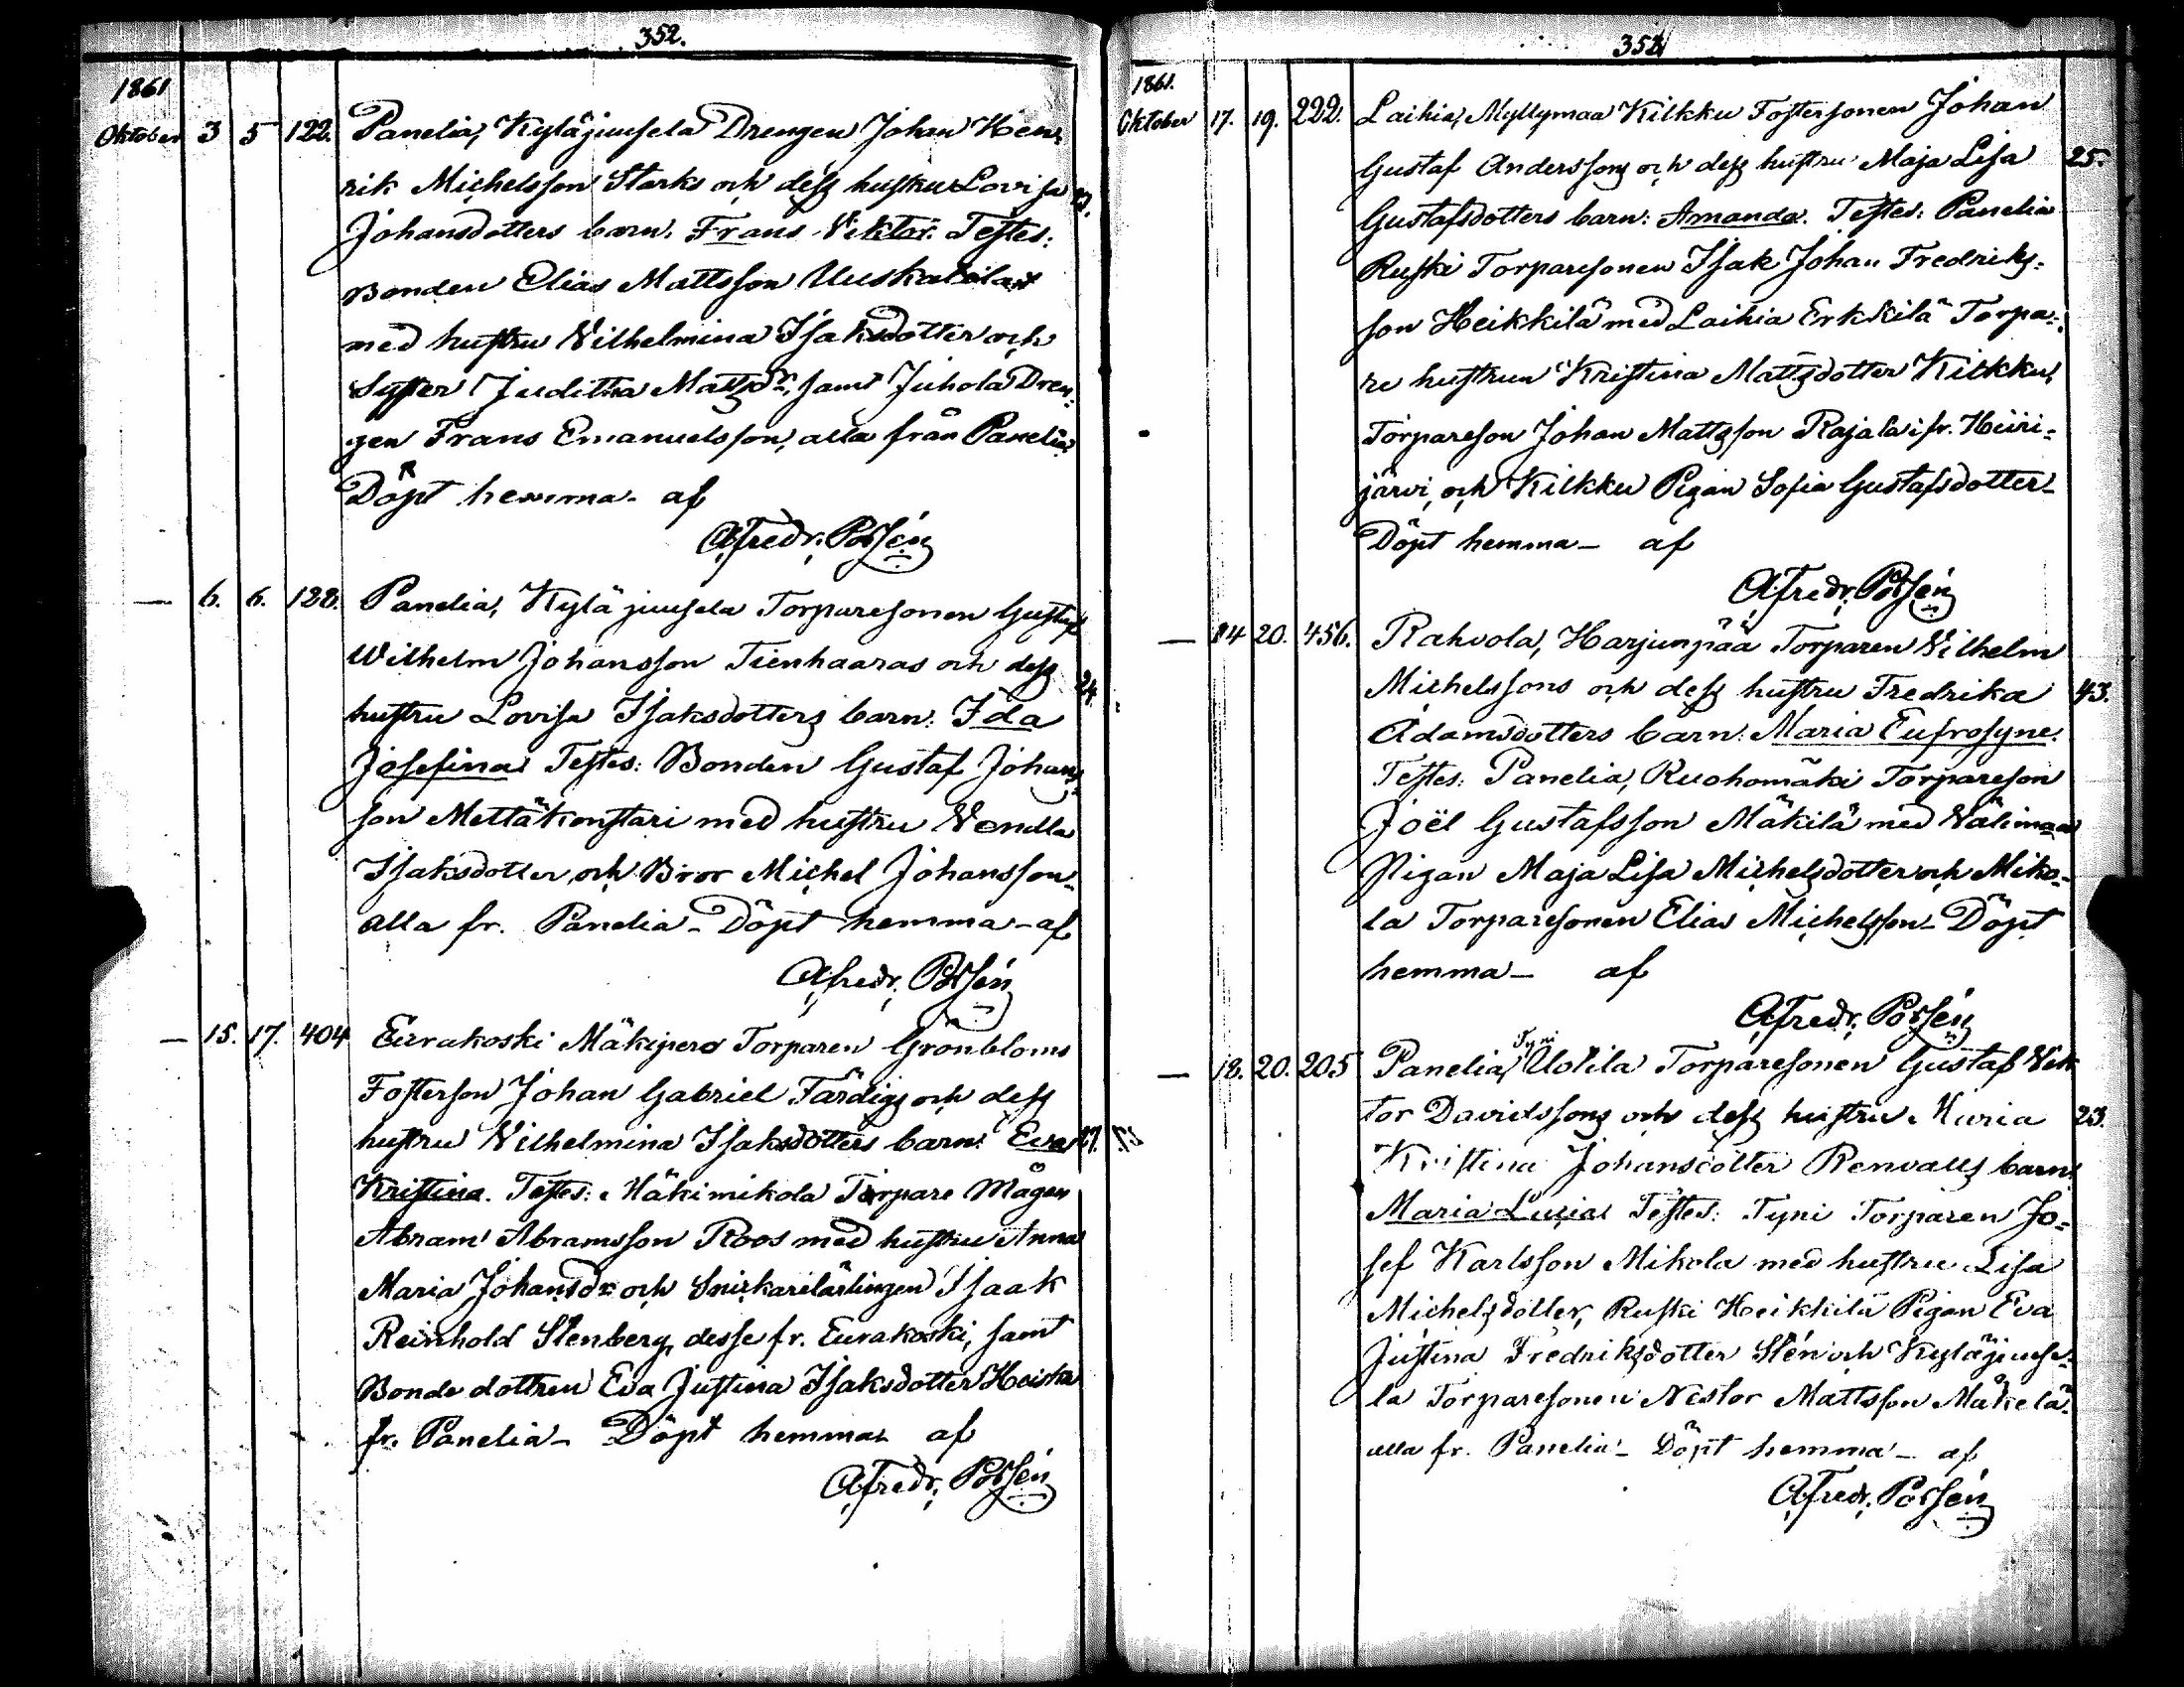 352.
1861
Oktober 3 5 122. Panelia, Kyläjuusela Drengen Johan Hen-
rik Michelsson Starks och dess hustru Lovisa
Johansdotters barn: Frans Viktor. Testes:
Bonden Elias Mattsson Uuskartila
med hustru Vilhelmina Isaksdotter och
Syster Juditha Mattsdr, samt Juhola Dren-
gen Frans Emanuelsson, alla från Panelia
Döpt hemma - af
AFredr. Polsén
— 6. 6. 128. Panelia, Kyläjuusela Torparesonen Gustaf
Wilhelm Johansson Tienhaaras och dess 24.
hustru Lovisa Isaksdotters barn: Ida
Josefina Testes: Bonden Gustaf Johans-
son Mettätonstari med hustru Vendla
Isaksdotter, och Bror Michel Johansson-
alla fr. Panelia - Döpt hemma - af
AFredr. Polsén
— 15. 17. 404 Eurakoski Mäkipero Torparen Grönbloms
Fosterson Johan Gabriel Färdigs och dess
hustru Vilhelmina Isaksdotters barn: Eva 27.
Kristina. Testes: Mäkimikola Torpare Mågen
Abram Abramsson Roos med hustru Anna
Maria Johansdr och Snickarelärlingen Isaak
Reinhold Stenberg, desse fr. Eurakoski, samt
Bonde dottren Eva Justina Isaksdotter Heiska
fr. Panelia - Döpt hemma - af
AFredr. Polsén
353
1861.
Oktober 17. 19. 222. Laihia, Myllymaa Kilkku Fostersonen Johan
Gustaf Anderssons och dess hustru Maja Lisa 25.
Gustafsdotters barn: Amanda. Testes: Panelia
Ruski Torparesonen Isak Johan Fredriks-
son Heikkilä med Laihia Erkkilä Torpa-
re hustrun Kristina Mattsdotter Kilkku,
Torpareson Johan Mattsson Rajala i fr. Hiiri-
järvi, och Kilkku Pigan Sofia Gustafsdotter -
Döpt hemma - af
AFredr. Polsén
— 14 20. 456. Rahvola, Harjunpää Torparen Vilhelm
Michelssons och dess hustru Fredrika 43.
Adamsdotters barn: Maria Eufrosyne.
Testes: Panelia, Ruohomäki Torpareson
Joël Gustafsson Mäkilä med Välimaa
Pigan Maja Lisa Michelsdotter och Miko-
la Torparesonen Elias Michelsson - Döpt
hemma - af
AFredr. Polsén
Tyni
— 18. 20. 205 Panelia, Uotila Torparesonen Gustaf Vik
tor Davidssons och dess hustru Maria 23.
Kristina Johansdotter Renvalls barn:
Maria Lusia Testes: Tyni Torparen Jo-
sef Karlsson Mikola med hustru Lisa
Michelsdotter, Ruski Heikkilä Pigan Eva
Justina Fredriksdotter Stén och Kyläjuuse-
la Torparesonen Nestor Mattsson Mäkelä
alla fr. Panelia - Döpt hemma - af
AFredr. Polsén